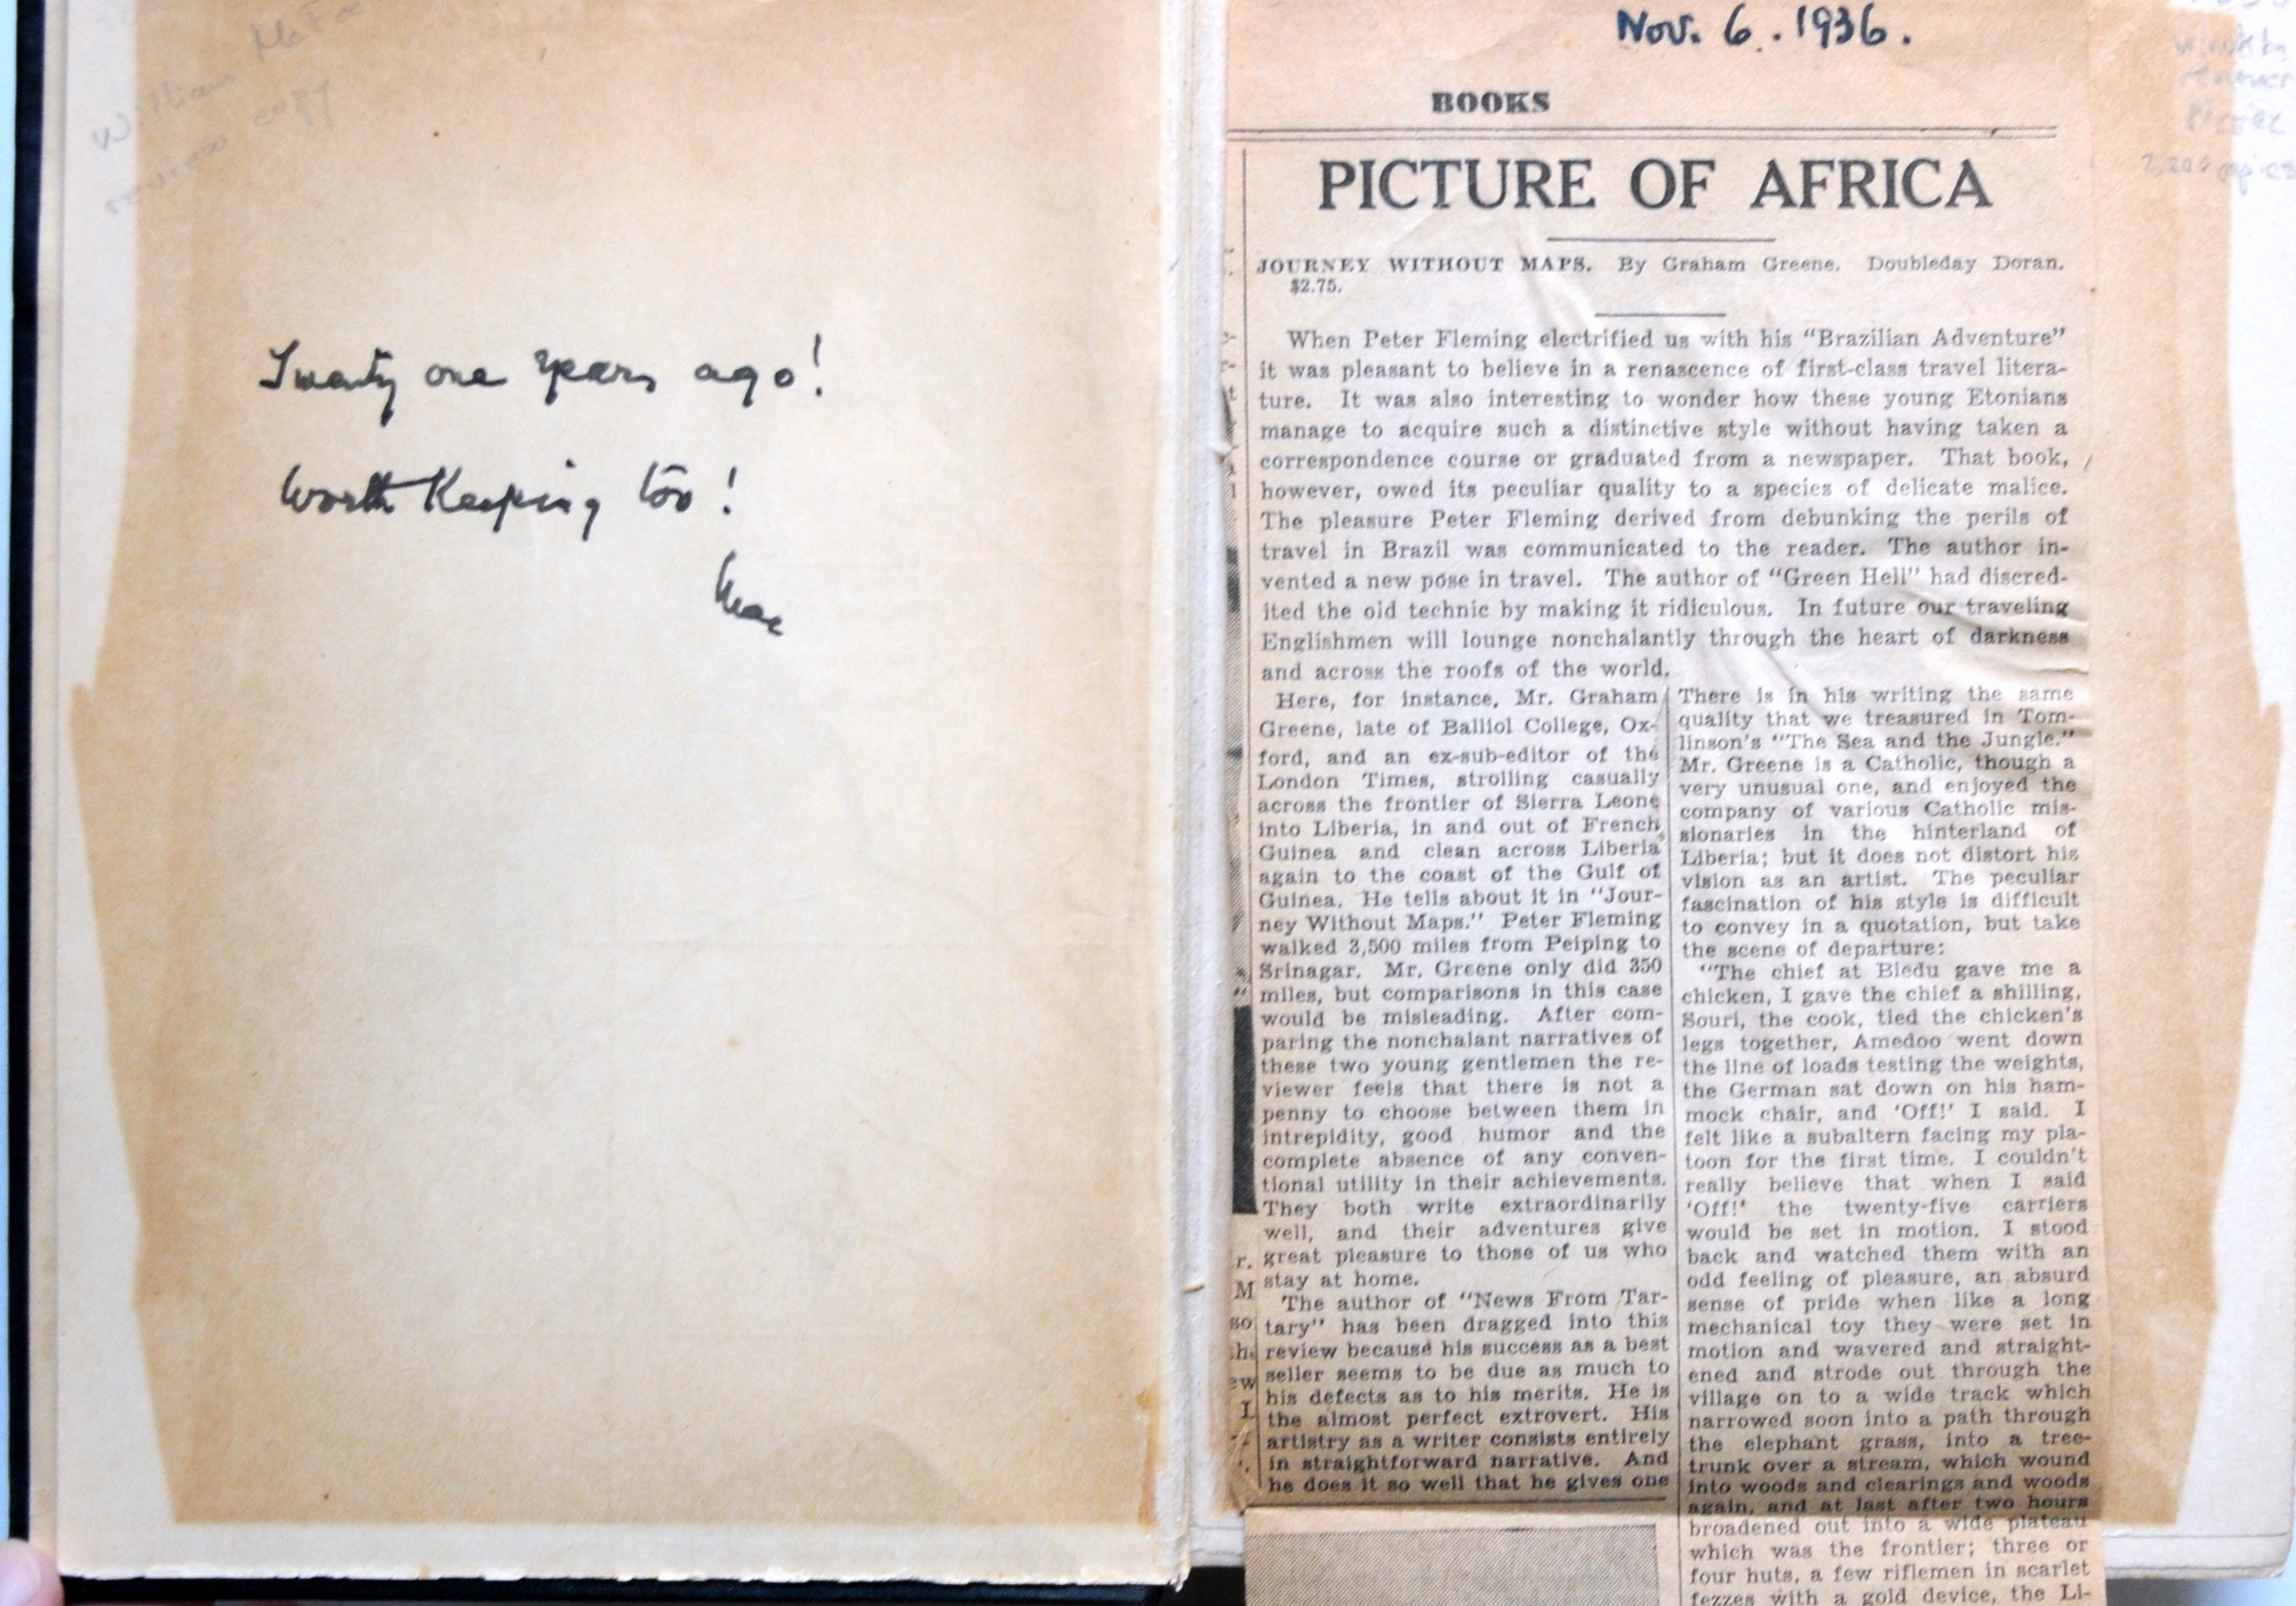 William McFee
review copy
Twenty one years ago!
Worth Keeping too!
Mac
Nov. 6. 1936.
BOOKS
PICTURE OF AFRICA
JOURNEY WITHOUT MAPS. By Graham Greene. Doubleday Doran.
$2.75.
When Peter Fleming electrified us with his "Brazilian Adventure"
it was pleasant to believe in a renascence of first-class travel litera-
ture. It was also interesting to wonder how these young Etonians
manage to acquire such a distinctive style without having taken a
correspondence course or graduated from a newspaper. That book,
however, owed its peculiar quality to a species of delicate malice.
The pleasure Peter Fleming derived from debunking the perils of
travel in Brazil was communicated to the reader. The author in-
vented a new pose in travel. The author of "Green Hell" had discred-
ited the old technic by making it ridiculous. In future our traveling
Englishmen will lounge nonchalantly through the heart of darkness
and across the roofs of the world.
Here, for instance, Mr. Graham
Greene, late of Balliol College, Ox-
ford, and an ex-sub-editor of the
London Times, strolling casually
across the frontier of Sierra Leone
into Liberia, in and out of French
Guinea and clean across Liberia
again to the coast of the Gulf of
Guinea. He tells about it in "Jour-
ney Without Maps." Peter Fleming
walked 3,500 miles from Peiping to
Srinagar. Mr. Greene only did 350
miles, but comparisons in this case
would be misleading. After com-
paring the nonchalant narratives of
these two young gentlemen the re-
viewer feels that there is not a
penny to choose between them in
intrepidity, good humor and the
complete absence of any conven-
tional utility in their achievements.
They both write extraordinarily
well, and their adventures give
great pleasure to those of us who
stay at home.
The author of "News From Tar-
tary" has been dragged into this
review because his success as a best
seller seems to be due as much to
his defects as to his merits. He is
the almost perfect extrovert. His
artistry as a writer consists entirely
in straightforward narrative. And
he does it so well that he gives one
There is in his writing the same
quality that we treasured in Tom-
linson's "The Sea and the Jungle."
Mr. Greene is a Catholic, though a
very unusual one, and enjoyed the
company of various Catholic mis-
sionaries in the hinterland of
Liberia; but it does not distort his
vision as an artist. The peculiar
fascination of his style is difficult
to convey in a quotation, but take
the scene of departure:
"The chief at Biedu gave me a
chicken, I gave the chief a shilling,
Souri, the cook, tied the chicken's
legs together, Amedoo went down
the line of loads testing the weights,
the German sat down on his ham-
mock chair, and 'Off!' I said. I
felt like a subaltern facing my pla-
toon for the first time. I couldn't
really believe that when I said
'Off!' the twenty-five carriers
would be set in motion. I stood
back and watched them with an
odd feeling of pleasure, an absurd
sense of pride when like a long
mechanical toy they were set in
motion and wavered and straight-
ened and strode out through the
village on to a wide track which
narrowed soon into a path through
the elephant grass, into a tree-
trunk over a stream, which wound
into woods and clearings and woods
again, and at last after two hours
broadened out into a wide plateau
which was the frontier; three or
four huts, a few riflemen in scarlet
fezzes with a gold device, the Li-
copies